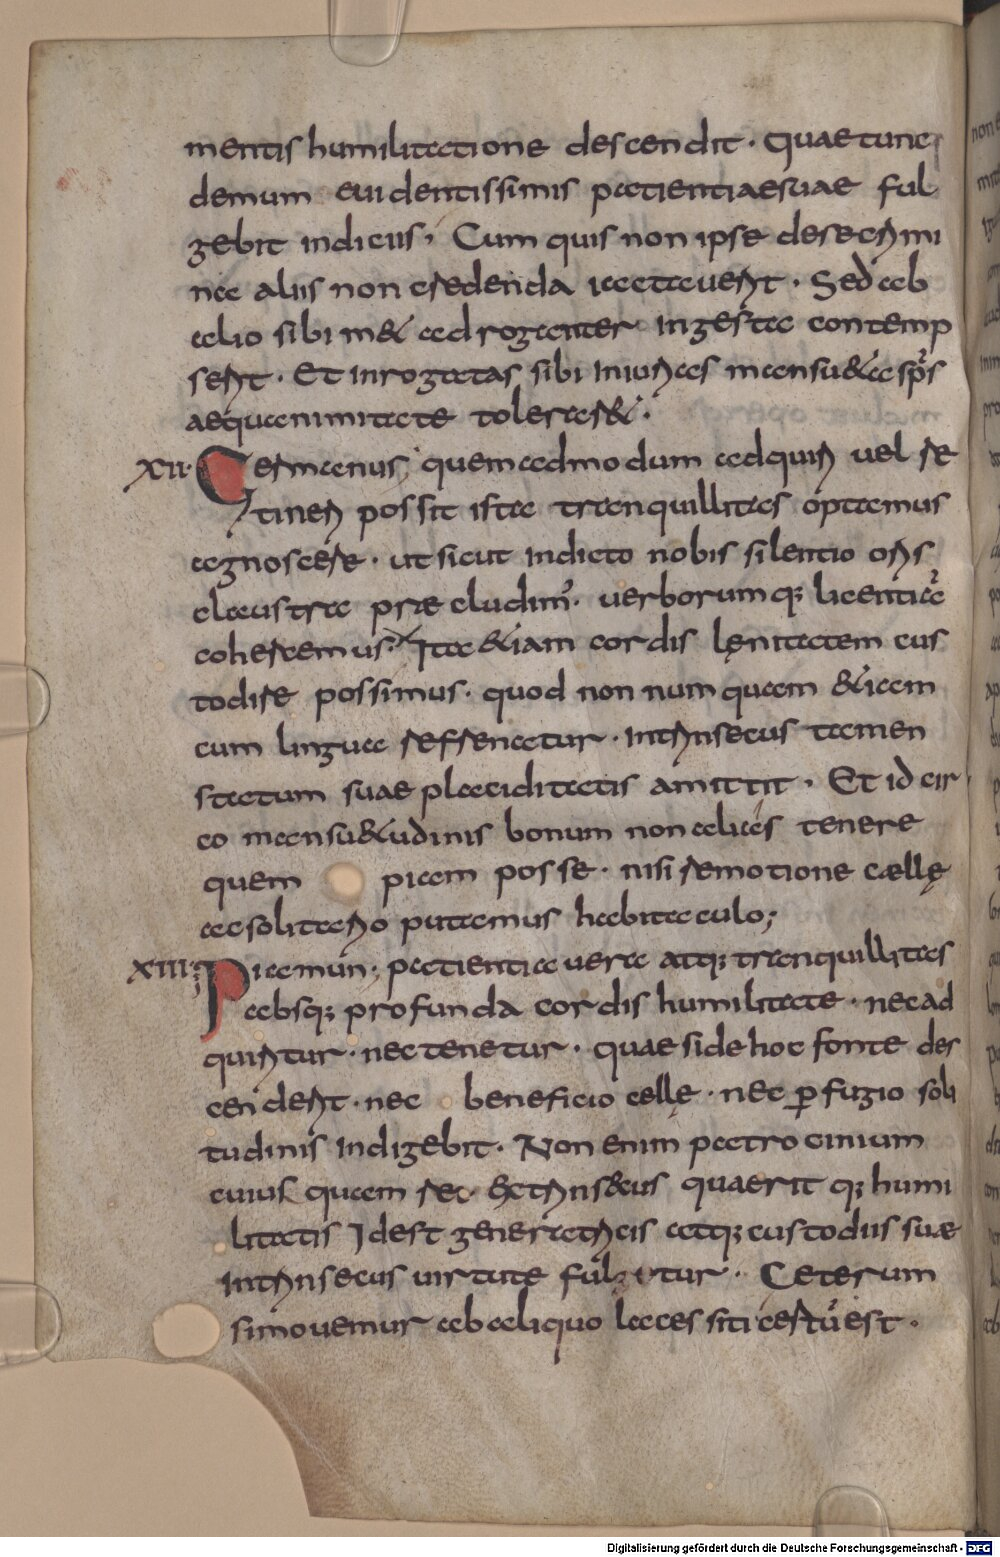 mentis humilitatione descendit. Quae tunc
demum euidentissimis patientiae suae ful
gebit indiciis, Cum quis non ipse de se crimi
na aliis non credenda iactauerit. Sed ab
alio sibim& adroganter ingesta contemp
serit. Et inrogatas sibi iniurias mansu&a sps
aequanimitate toler&.
XII. Germanus; quemadmodum adquiri uel re
tineri possit ista tranquillitas optamus
agnoscere. ut sicut indicto nobis silentio oris
claustra præ cludim. uerborumq; licentia
cohercemus. Ita &iam cordis lęnitatem cus
todire possimus. quod non numquam &iam
cum lingua refrenatur. intrinsecus tamen
statum suae placiditatis amittit. Et id cir
co mansu&udinis bonum non alias tenere
quem piam posse. nisi remotione cællę
ac solitario putamus habitaculo;
XIII; Piamun; patientia uera atq; tranquillitas
absq; profunda cordis humilitate. nec ad
quiritur. nec tenetur. quae si de hoc fonte des
cenderit. nec beneficio cellę. nec perfugio soli
tudinis indigebit. Non enim patrocinium
cuius quam rei extrins&us quaerit q; humi
litatis Idest generatricis atq; custodiis suæ
intrinsecus uirtute fulcitur. Ceterum
si mouemur ab aliquo lacessiti certu est.
Digitalisierung gefördert durch die Deutsche Forschungsgemeinschaft - DFG